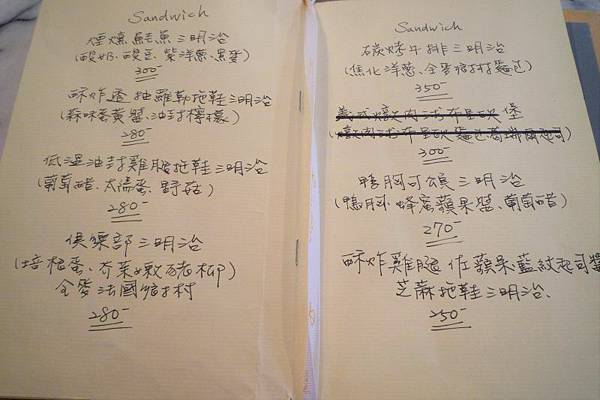 Sandwich
煙燻鮭魚三明治
(酸奶、酸豆、紫洋蔥、黑麥)
300-
酥炸透抽羅勒拖鞋三明治
(蒜味蛋黃醬、油封檸檬)
280-
低溫油封雞腿拖鞋三明治
(葡萄醋、太陽蛋、野菇)
280-
俱樂部三明治
(培根蛋、芥菜嫩
全麥法國鄉村
280-
Sandwich
碳烤牛排三明治
(焦化洋蔥、全麥鄉村麵包)
350-
堡
300-
鴨胸可頌三明治
(鴨胸、蜂蜜蘋果醬、葡萄醋)
270-
酥炸雞腿佐蘋果藍紋起司醬
芝麻拖鞋三明治、
250-